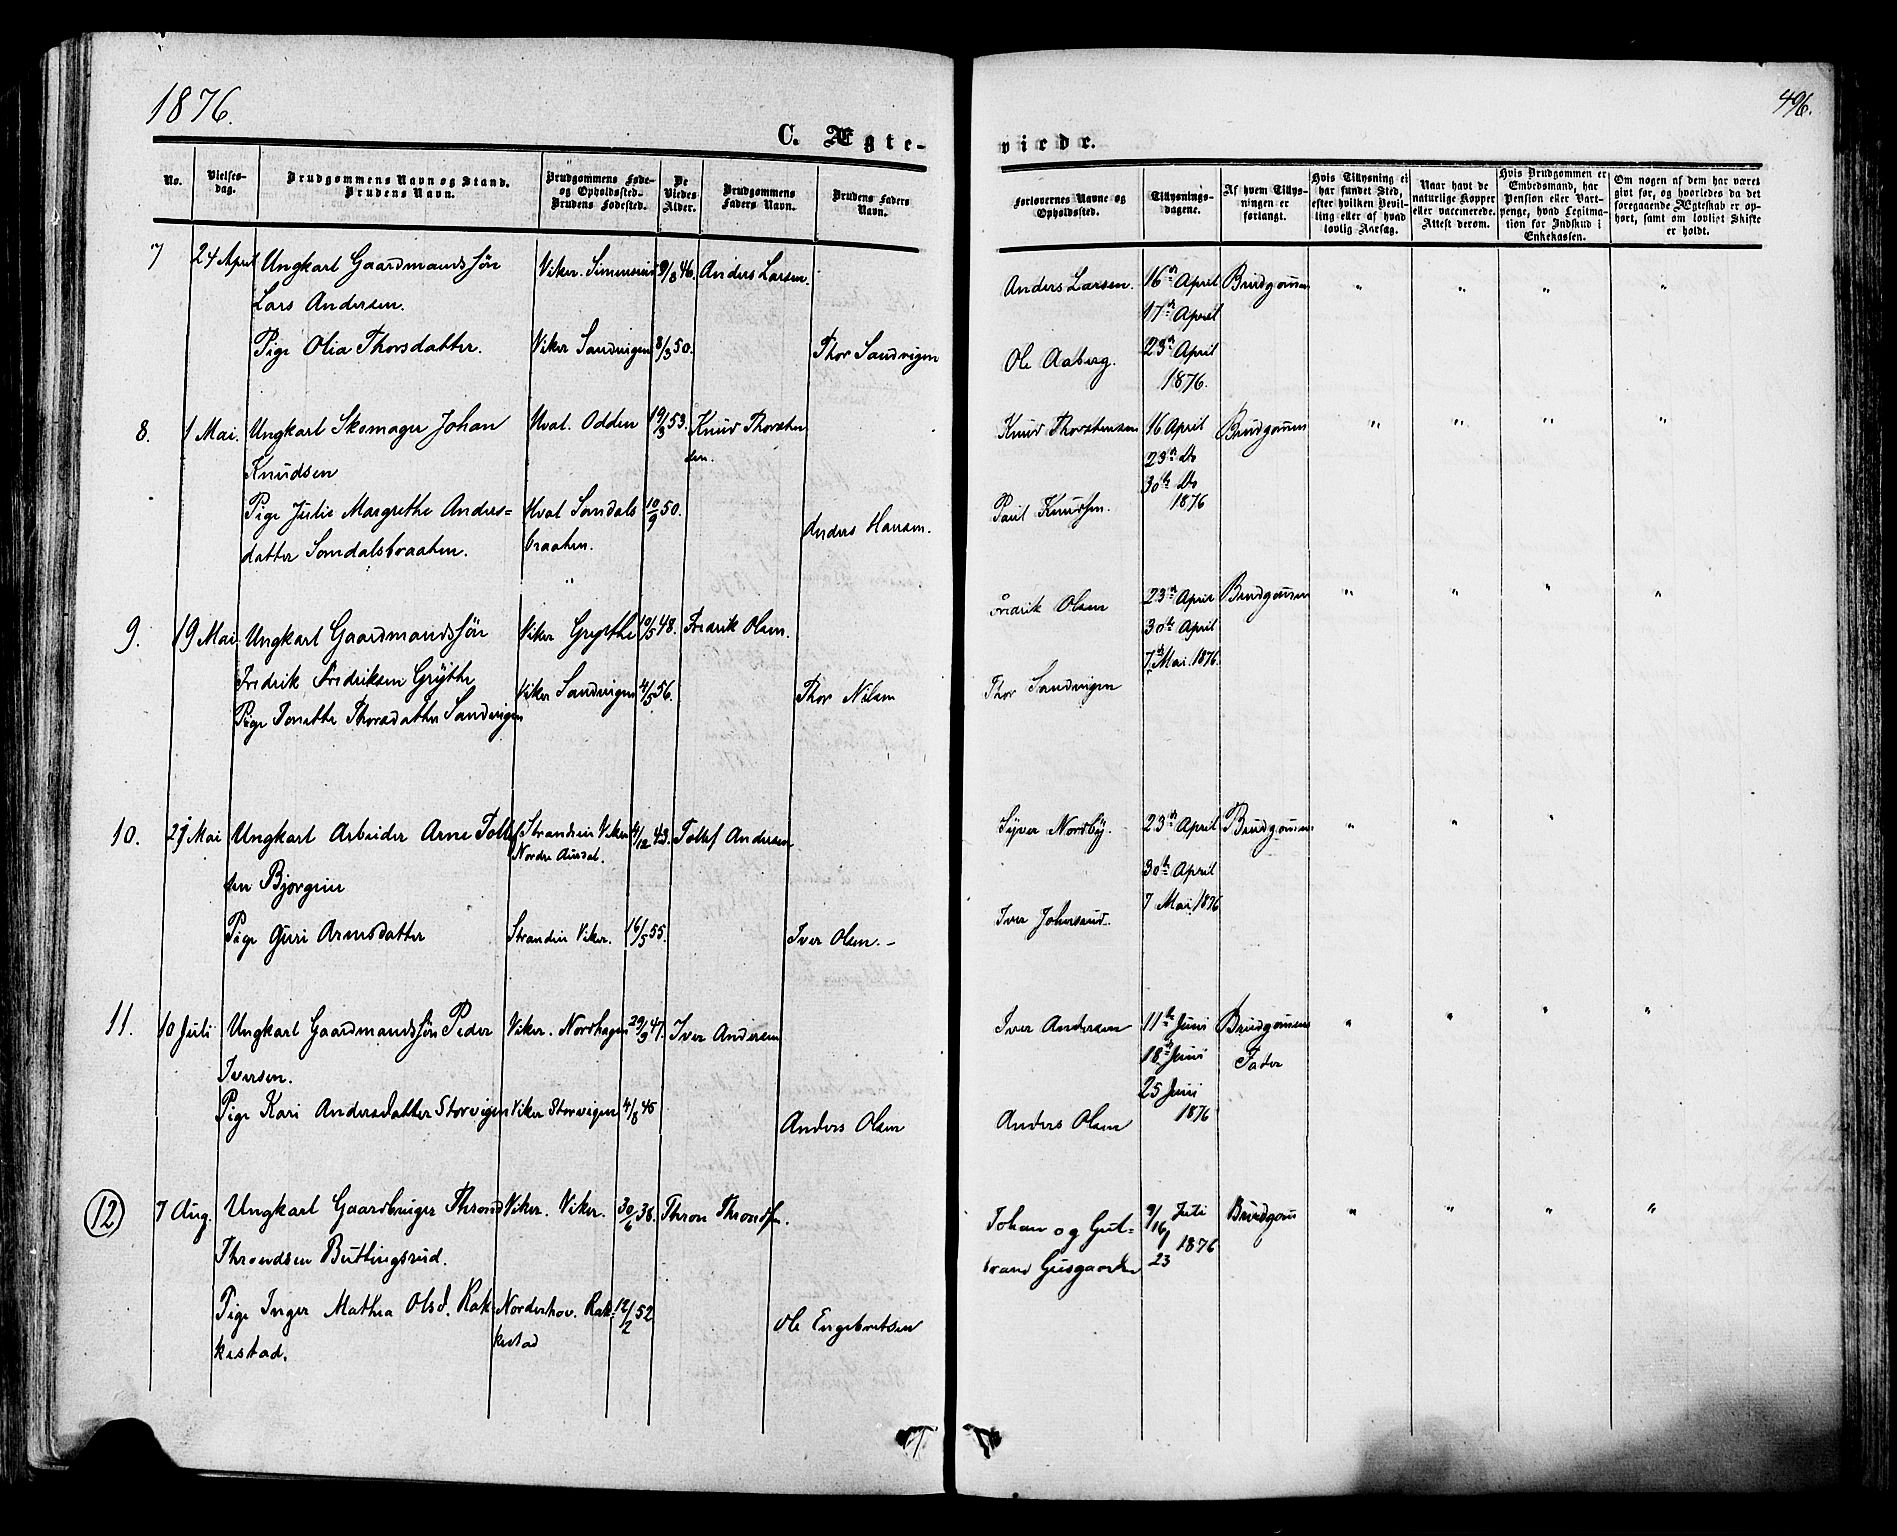 1876.
496.
C. Ægte-
viede.
No.
Vielses-
dag.
Brudgommens Navn og Stand.
Brudens Navn.
Brudgommens Føde-
og Opholdssted.
Brudens Fødested.
De
Viedes
Alder.
Brudgommens
Faders Navn.
Brudens Faders
Navn.
Forlovernes Navne og
Opholdssted.
Tillysnings-
dagene.
Af hvem Tillys-
ningen er
forlangt.
Hvis Tillysning ei
har fundet Sted,
efter hvilken Bevil-
ling eller af hvad
lovlig Aarsag.
Naar havt de
naturlige Kopper
eller vaccinerede.
Attest derom.
Hvis Brudgommen er
Embedsmand, har
Pension eller Vart-
penge, hvad Legitima-
tion for Indskud i
Enkekassen.
Om nogen af dem har været
givt før, og hvorledes da det
foregaaende Ægteskab er op-
hørt, samt om lovligt Skifte
er holdt.
7 24 April Ungkarl Gaardmandssøn Viker. Simensrud 9/8 46. Anders Larsen.
Lars Andersen.
Pige Olia Thorsdatter. Viker Sandvigen 8/3 50. Thor Sandvigen
Anders Larsen. 16de April Brudgommen " " " "
17de April
Ole Aaberg. 23de April
1876.
8. 1 Mai. Ungkarl Skomager Johan Hval. Odden 19/3 53. Knud Thorsten
sen.
Knudsen
Pige Julie Margrethe Anders= Hval Somdals 10/9 50.
datter Somdalsbraaten. braaten. Anders Hansen.
"
Knud Thorstensen 16 April Brudgommen " " " "
23de Do
30te Do
Paul Knudsen. 1876
9. 19 Mai Ungkarl Gaardmandssøn Viker Grythe 10/5 48. Fredrik Olsen.
Fredrik Fredriksen Grythe
Pige Tonette Thorsdatter Sandvigen Viker Sandvigen 4/5 56. Thor Nilsen
Fredrik Olsen 23de April Brudgommen " " " "
30te April
7de Mai 1876.
Thor Sandvigen
10. 29 Mai Ungkarl Arbeider Arne Tollef Strandeie Viker 4/12 43. Tollef Andersen
Nordre Aurdal.
sen Bjørgeie
Pige Guri Arnesdatter Strandeie Viker. 16/5 55. Iver Olsen.-
Syver Nordby. 23de April Brudgommen " " "
30te April
7 Mai 1876
Iver Johnsrud.
11. 10 Juli Ungkarl Gaardmandssøn Peder Viker. Nordhagen 29/9 47. Iver Andersen
Iversen.
Pige Kari Andersdatter Storvigen Viker Storvigen 4/8 45 Anders Olsen
Iver Andersen 11te Juni Brudgommens " " " "
18de Juni Fader
25 Juni
Anders Olsen 1876
12 7 Aug. Ungkarl Gaardbruger Thrond Viker. Viker. 30/6 38. Thron Throndsen.
Throndsen Buttingsrud.
Pige Inger Mathea Olsd. Rak- Norderhov. Rak- 12/2 52
kestad. kestad Ole Engebretsen
Johan og Gut- 9/16 Juli Brudgom " " " "
brand Gusgaarden 23 1876